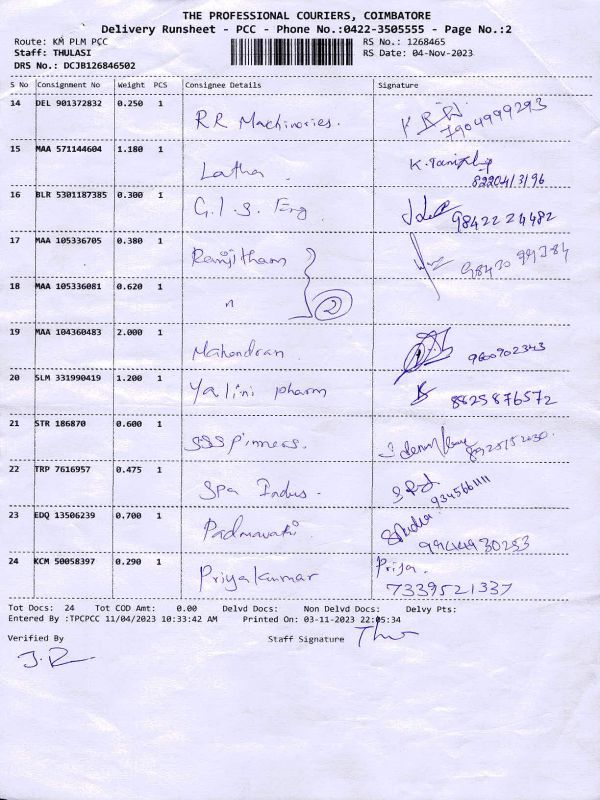 THE PROFESSIONAL COURIERS, COIMBATORE
Delivery Runsheet - PCC - Phone No.:0422-3505555 - Page No.:2
Route: KM PLM PCC RS No.: 1268465
Staff: THULASI RS Date: 04-Nov-2023
DRS No.: DCJB126846502
S No Consignment No Weight PCS Consignee Details Signature
14 DEL 901372832 0.250 1 RR Machinories. 7904999293
15 MAA 571144604 1.180 1 Latha 8220413196
16 BLR 5301187385 0.300 1 G.I.S. Eng 98422 24482
17 MAA 105336705 0.380 1 Ranjitham
18 MAA 105336081 0.620 1 " 2
19 MAA 104360483 2.000 1 Mahendran. 9600902343
20 SLM 331990419 1.200 1 Yalini pharm 8825876572
21 STR 186870 0.600 1 SSS
22 TRP 7616957 0.475 1 Spa Indus.
23 EDQ 13506239 0.700 1 Padmavathi
24 KCM 50058397 0.290 1 Priyakumar Priya. 7339521337
Tot Docs: 24 Tot COD Amt: 0.00 Delvd Docs: Non Delvd Docs: Delvy Pts:
Entered By :TPCPCC 11/04/2023 10:33:42 AM Printed On: 03-11-2023 22:05:34
Verified By Staff Signature